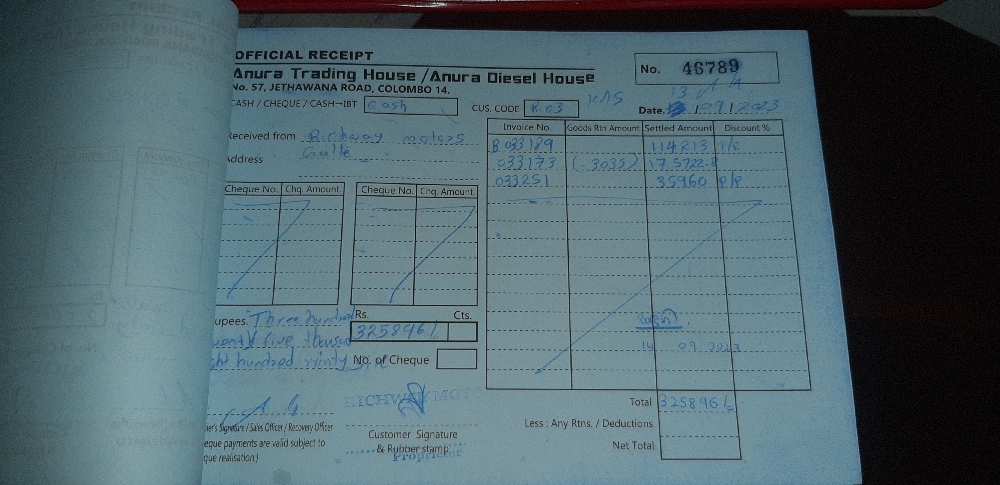 OFFICIAL RECEIPT
Anura Trading House /Anura Diesel House
No. 57, JETHAWANA ROAD, COLOMBO 14.
No. 46789
CASH / CHEQUE / CASH→IBT Cash
CUS. CODE R.03
Date. 13 /09/2023
Received from Richway motors
Address Galle
Cheque No. Chq. Amount Cheque No. Chq. Amount
Invoice No. Goods Rtn Amount Settled Amount Discount %
B 033189 114213 P/R
033173 (-3035) 175722.8
033251 35960 P/R
upees. Three hundred
wenty five thousand
ght hundred ninty six
Rs. Cts.
325896/
No. of Cheque
14 09.2023
Total 325896/-
Less : Any Rtns. / Deductions
Net Total
RICHWAY MOTO
er's Signature / Sales Officer / Recovery Officer
eque payments are valid subject to
que realisation.)
Customer Signature
& Rubber stamp
Proprietor